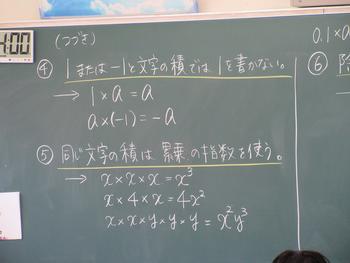 4:00
(つづき)
④ 1または-1と文字の積では1を書かない。
→ 1×a = a
a×(-1) = -a
⑤ 同じ文字の積は累乗の指数を使う。
→ x×x×x = x³
x×4×x = 4x²
x×x×y×y×y = x²y³
0.1×a
⑥ 除